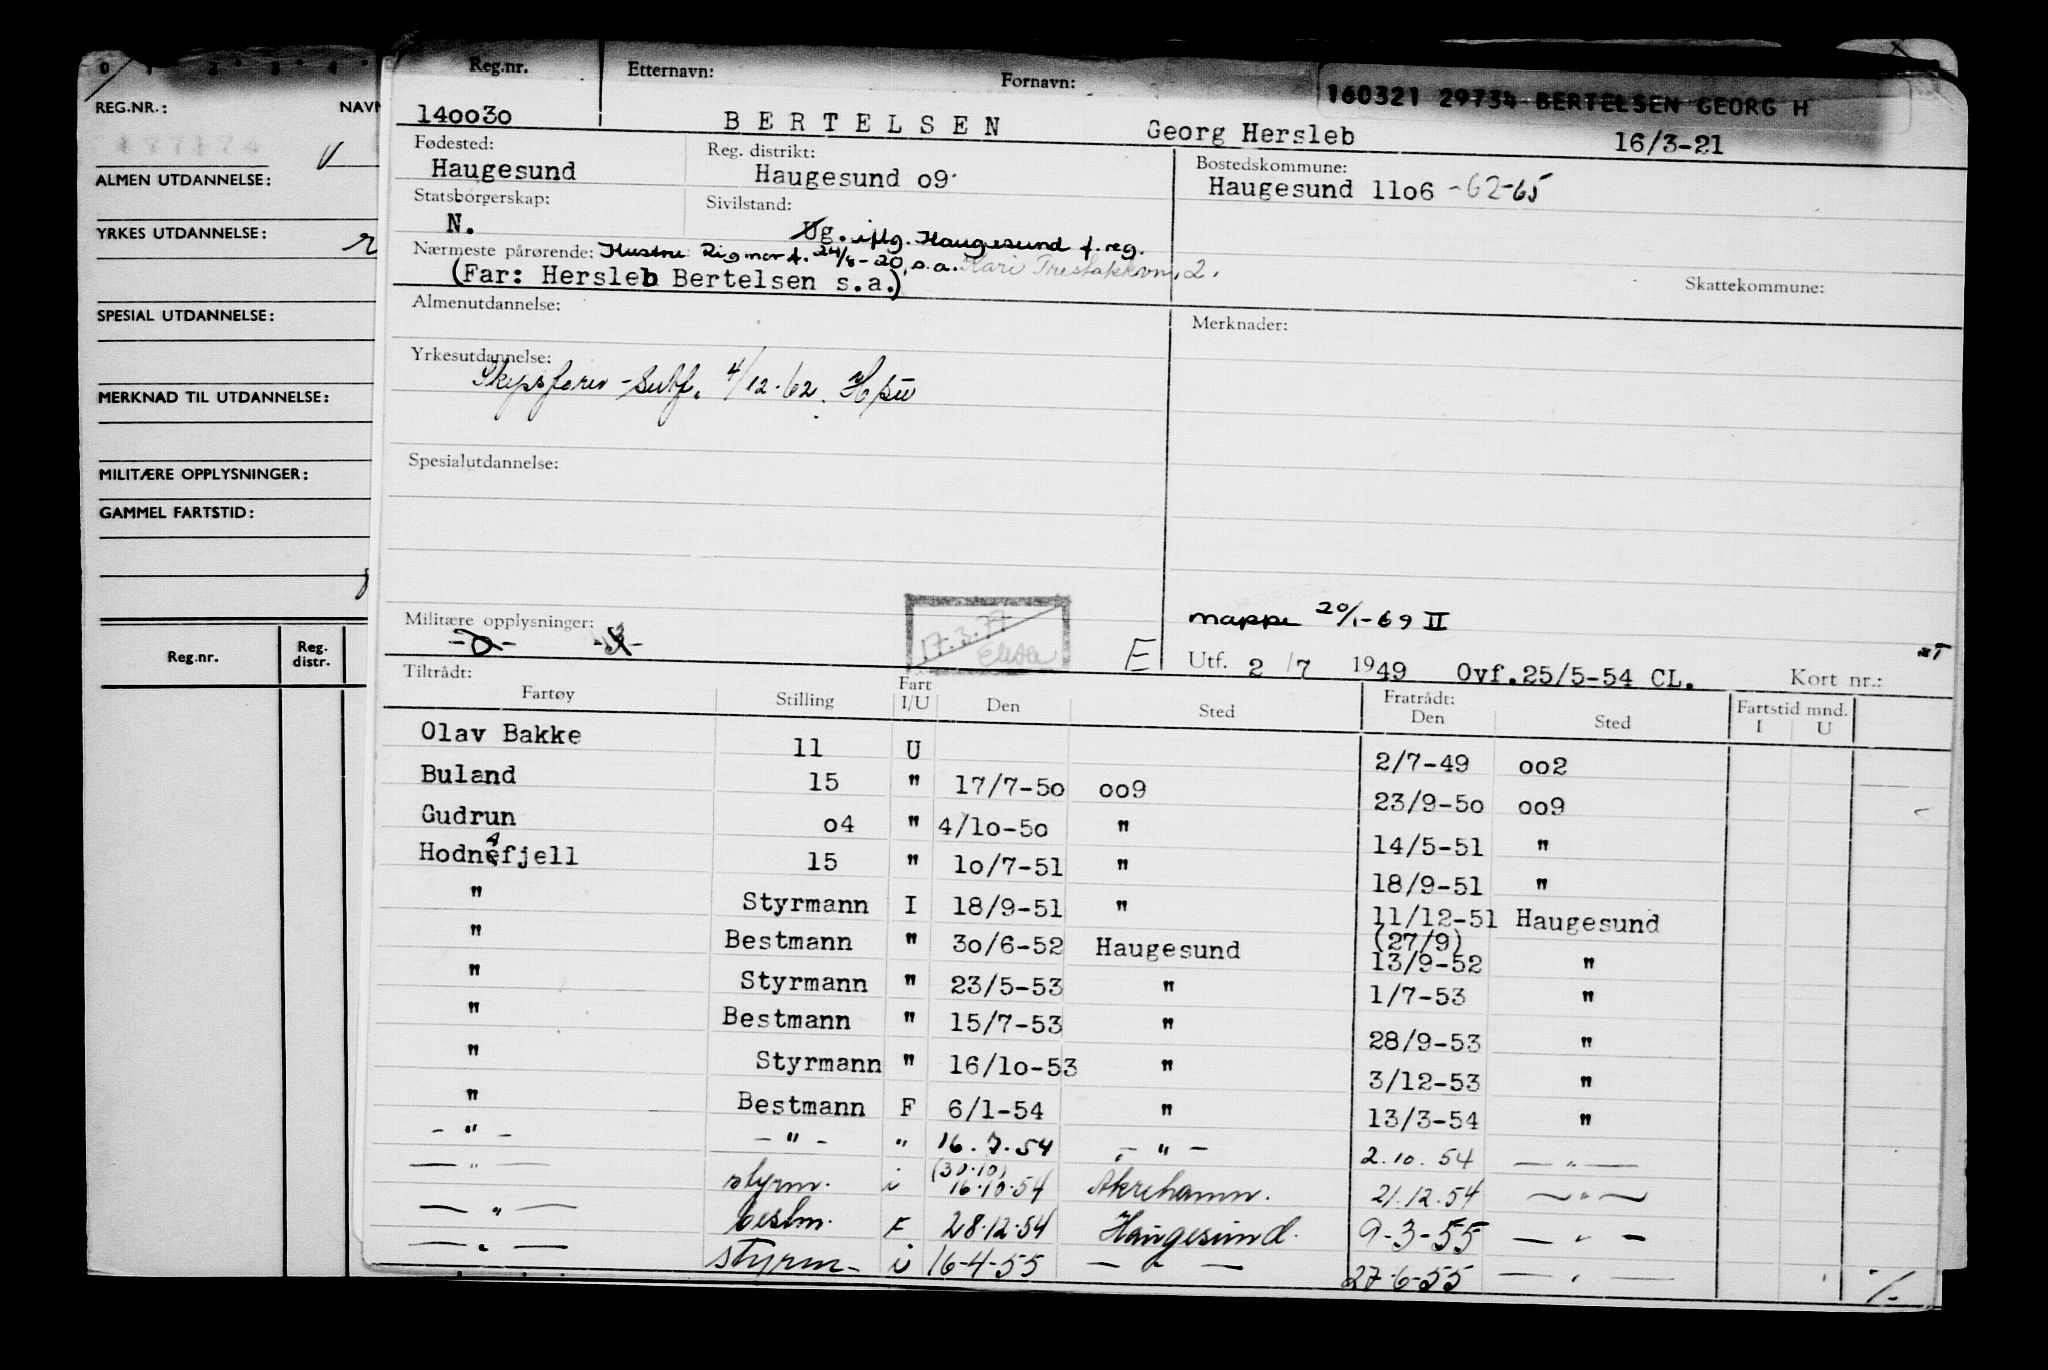 0 1 2 3 4
REG.NR.: NAVN
ALMEN UTDANNELSE:
YRKES UTDANNELSE:
SPESIAL UTDANNELSE:
MERKNAD TIL UTDANNELSE:
MILITÆRE OPPLYSNINGER:
GAMMEL FARTSTID:
Reg.nr. Reg. distr.
Reg.nr. Etternavn: Fornavn:
160321 29734 BERTELSEN GEORG H
140030 BERTELSEN Georg Hersleb 16/3-21
Fødested: Reg. distrikt: Bostedskommune:
Haugesund Haugesund 09 Haugesund 1106 -62-65
Statsborgerskap: Sivilstand:
N. Ug. iflg. Haugesund f.reg.
Nærmeste pårørende: Hustru Rigmor f. 24/8-20, s.a.
(Far: Hersleb Bertelsen s.a.)
Skattekommune:
Almenutdannelse: Merknader:
Yrkesutdannelse:
Skipsfører - 4/12-62. Hsu
Spesialutdannelse:
mappe 20/1-69 II
Militære opplysninger:
17.3.77
E
Utf. 2/7 1949 Ovf.25/5-54 CL. Kort nr.:
Tiltrådt: Fratrådt:
Fartøy Stilling Fart I/U Den Sted Den Sted Fartstid mnd. I U
Olav Bakke 11 U 2/7-49 002
Buland 15 " 17/7-50 009 23/9-50 009
Gudrun 04 " 4/10-50 " 14/5-51 "
Hodnefjell 15 " 10/7-51 " 18/9-51 "
" Styrmann I 18/9-51 " 11/12-51 Haugesund
" Bestmann " 30/6-52 Haugesund (27/9) 13/9-52 "
" Styrmann " 23/5-53 " 1/7-53 "
" Bestmann " 15/7-53 " 28/9-53 "
" Styrmann " 16/10-53 " 3/12-53 "
" Bestmann F 6/1-54 " 13/3-54 "
- " - - " - " 16.7.54 - " - 2.10.54 - " -
- " - styrm. i (30.10) 16.10.54 Åkrehamn. 21.12.54 - " -
- " - bestm. F 28.12.54 Haugesund. 9-3-55 - " -
- " - styrm- i 16-4-55 - " - 27-6-55 - " -